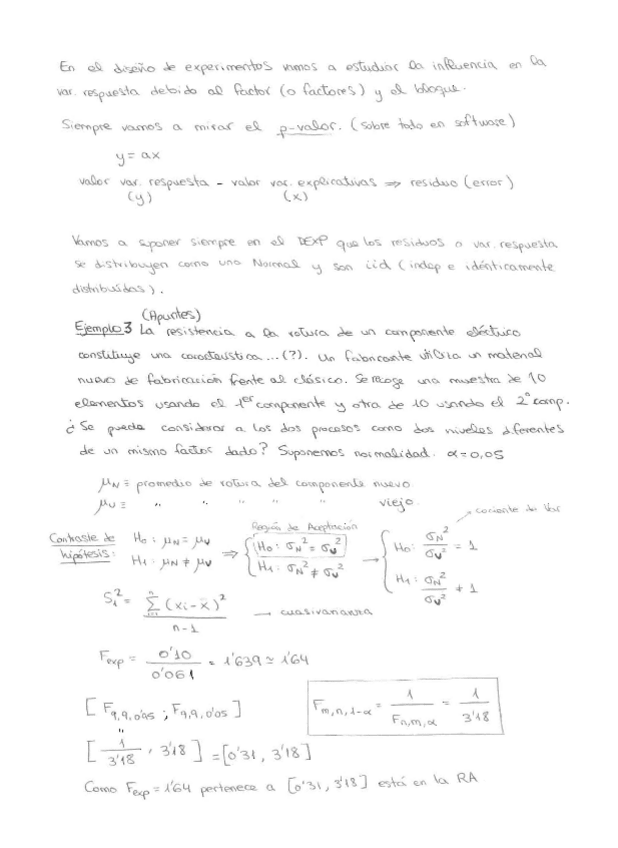 En el diseño de experimentos vamos a estudiar la influencia en la
var. respuesta debido al factor (o factores) y al bloque.
Siempre vamos a mirar el p-valor. (sobre todo en software)
y = ax
valor var. respuesta - valor var. explicativas ⇒ residuo (error)
(y) (x)
Vamos a suponer siempre en el DEXP que los residuos o var. respuesta
se distribuyen como una Normal y son iid (indep e idénticamente
distribuidas).
(Apuntes)
Ejemplo 3 La resistencia a la rotura de un componente eléctrico
constituye una característica ... (?). Un fabricante utiliza un material
nuevo de fabricación frente al clásico. Se recoge una muestra de 10
elementos usando el 1er componente y otra de 10 usando el 2º comp.
¿Se puede considerar a los dos procesos como dos niveles diferentes
de un mismo factor dado? Suponemos normalidad. α = 0,05
μN ≡ promedio de rotura del componente nuevo
μV ≡ " " " " viejo.
cociente de Var
Región de Aceptación
Contraste de hipótesis: H₀: μN = μV ⇒ { H₀: σN² = σV² → { H₀: σN²/σV² = 1
H₁: μN ≠ μV H₁: σN² ≠ σV² H₁: σN²/σV² ≠ 1
S₁² = Σ(i=1, n) (xi - x̄)² / n-1 → cuasivarianza
Fexp = 0'10 / 0'061 = 1'639 ≃ 1'64
[ F9,9,0'95 ; F9,9,0'05 ] Fm,n,1-α = 1 / Fn,m,α = 1 / 3'18
"
[ 1/3'18 , 3'18 ] = [0'31, 3'18]
Como Fexp = 1'64 pertenece a [0'31, 3'18] está en la RA